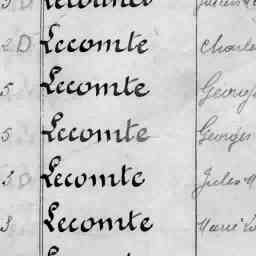 2 D Lecomte Charle
5 Lecomte Georg
5 Lecomte Georges
3 D Lecomte Jules M
3 Lecomte Marie L